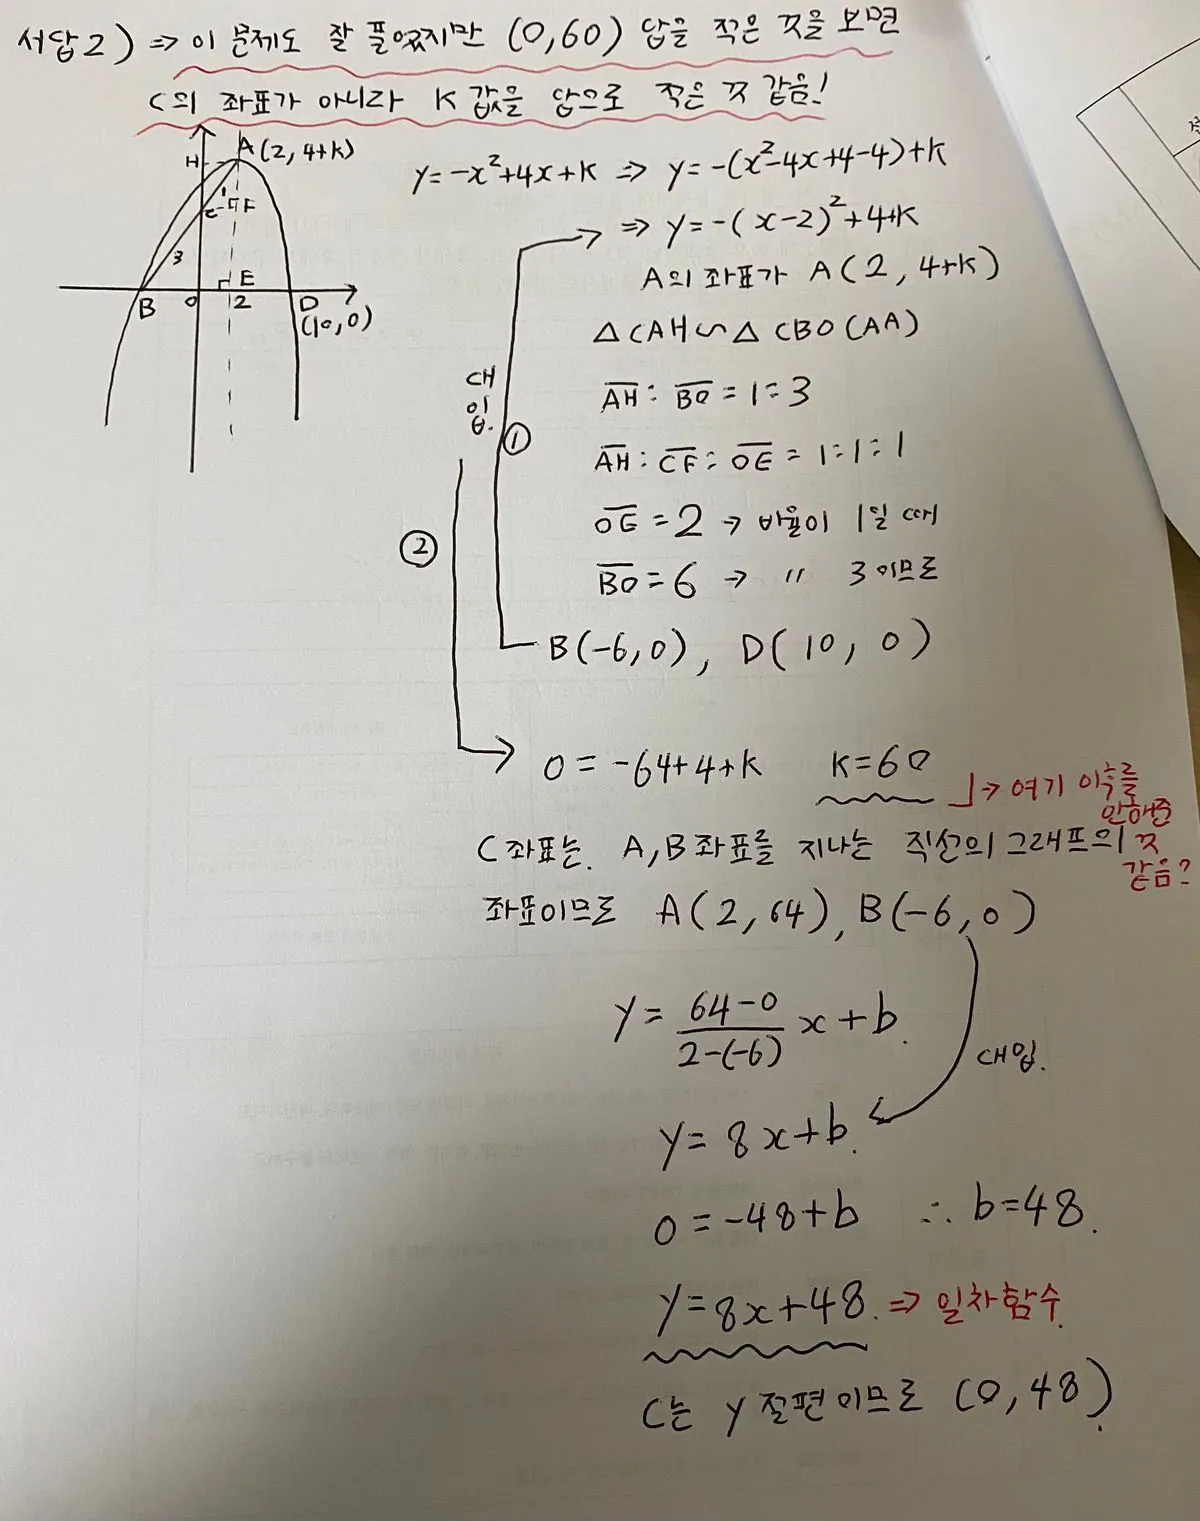 서답2) ⇒ 이 문제도 잘 풀었지만 (0,60) 답을 적은 것을 보면
C의 좌표가 아니라 K값을 답으로 적은 것 같음!
H A(2, 4+k)
C 1 F
3
B O E 2 D
(10,0)
y=-x²+4x+k ⇒ y=-(x²-4x+4-4)+k
⇒ y=-(x-2)²+4+k
A의 좌표가 A(2, 4+k)
△CAH∽△CBO(AA)
AH : BO = 1:3
AH : CF : OE = 1:1:1
OE = 2 → 비율이 1일 때
BO = 6 → 〃 3이므로
대입.
①
②
B(-6,0), D(10, 0)
0 = -64+4+k k=60
→ 여기 이후를
안해준
것
같음?
C좌표는 A,B좌표를 지나는 직선의 그래프의
좌표이므로 A(2,64), B(-6,0)
y = 64-0/2-(-6) x+b.
대입.
y = 8x+b.
0 = -48+b ∴ b=48.
y=8x+48. ⇒ 일차함수
C는 y절편이므로 (0,48).